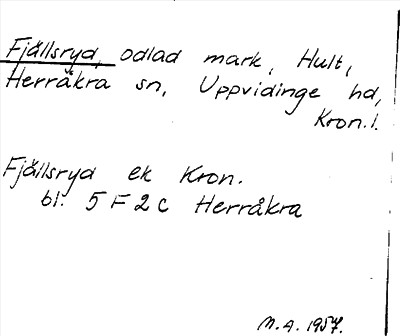 Fjällsryd, odlad mark, Hult,
Herråkra sn, Uppvidinge hd,
Kron.l.
Fjällsryd ek Kron.
bl. 5 F 2 c Herråkra
M.A. 1957.